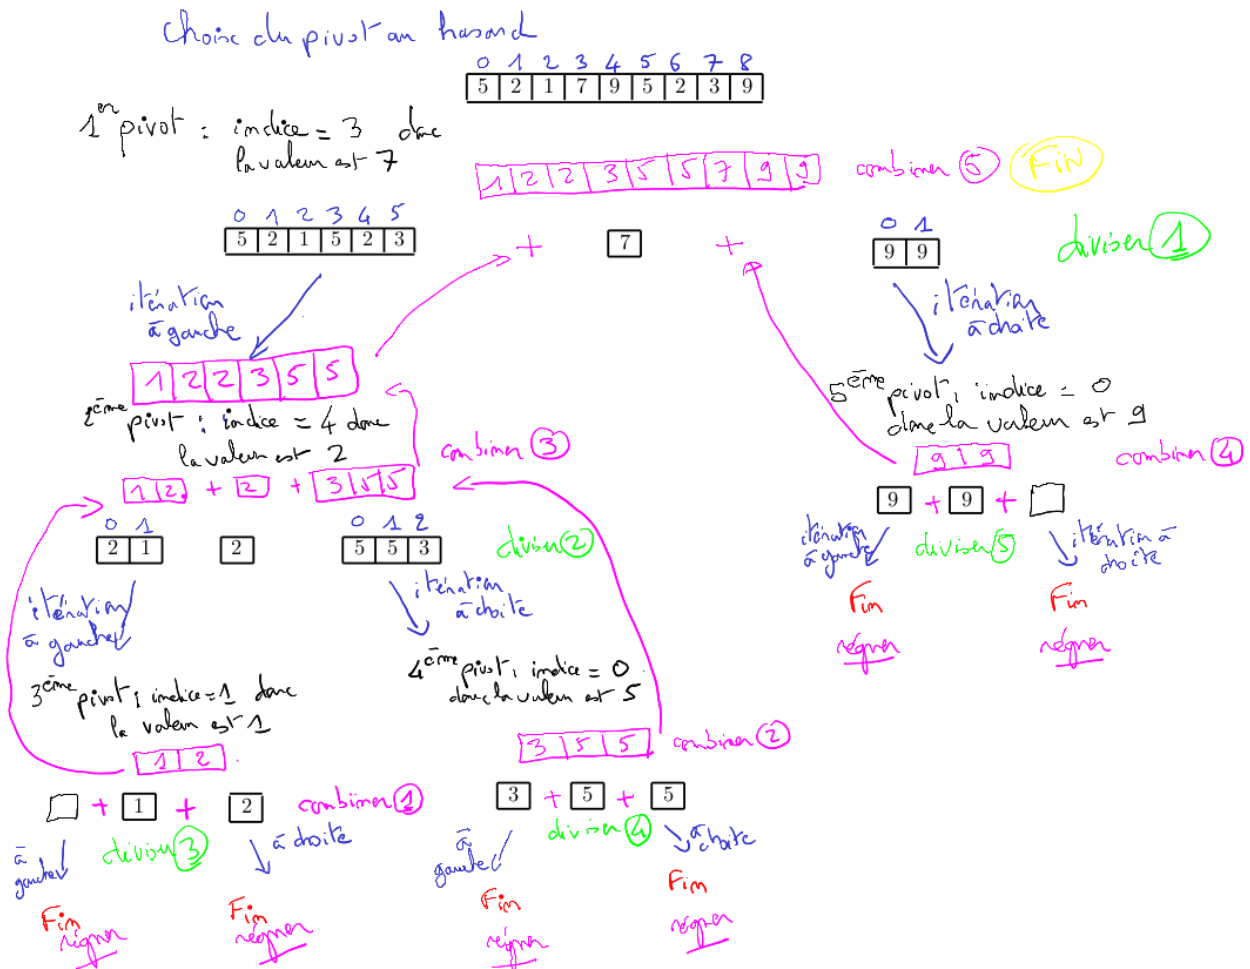 Choix du pivot au hasard
0 1 2 3 4 5 6 7 8
5 2 1 7 9 5 2 3 9
1er pivot : indice = 3 donc
la valeur est 7
1 2 2 3 5 5 7 9 9 combiner 5 FIN
0 1 2 3 4 5
5 2 1 5 2 3 + 7 +
0 1
9 9
diviser 1
itération
à gauche
itération
à droite
1 2 2 3 5 5
2ème pivot : indice = 4 donc
la valeur est 2
combiner 3
1 2 + 2 + 3 5 5
5ème pivot : indice = 0
donc la valeur est 9
9 9 combiner 4
9 + 9 +
itération
à gauche
diviser 5
itération à
droite
Fin
Fin
régner
régner
0 1
2 1
2
0 1 2
5 5 3
diviser 2
itération
à gauche
itération
à droite
3ème pivot : indice = 1 donc
la valeur est 1
4ème pivot : indice = 0
donc la valeur est 5
1 2
3 5 5 combiner 2
+ 1 + 2 combiner 1
3 + 5 + 5
à
gauche
diviser 3
à droite
à
gauche
diviser 4
à
droite
Fin
régner
Fin
régner
Fin
régner
Fin
régner